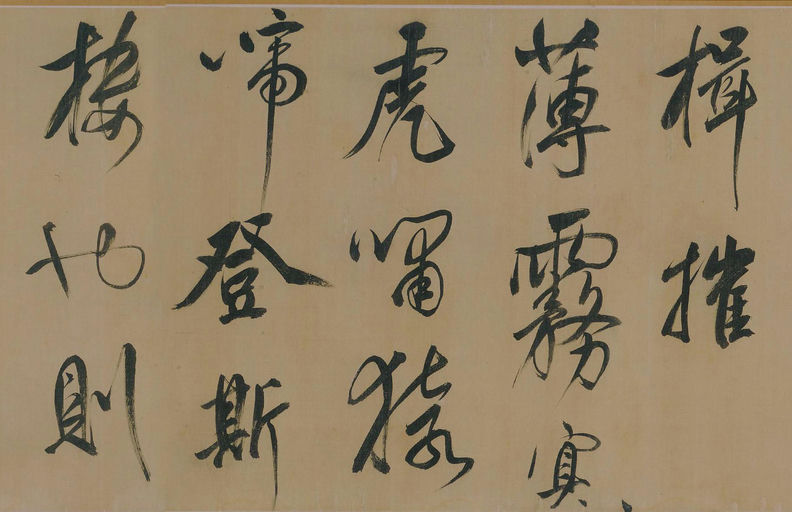 楫摧
薄霧冥々
虎嘯猿
啼登斯
樓也則